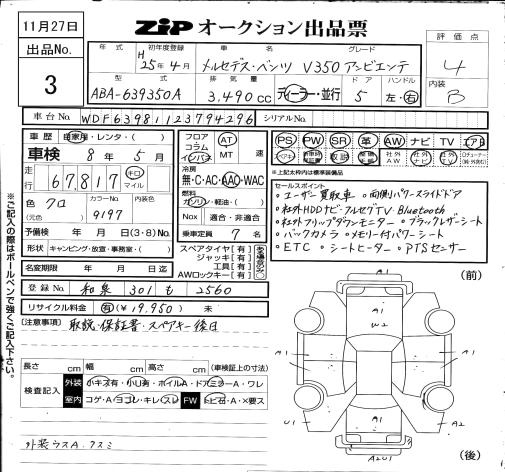 11月27日
ZiP オークション出品票
評価点
4
内装
B
出品No.
3
年式
初年度登録
車名
グレード
H
25年4月
メルセデス・ベンツ V350 アンビエンテ
型式
排気量
ドア
ハンドル
ABA-639350A
3,490cc
ディーラー・並行
5
左・右
車台No.
WDF63981123794296
シリアルNo.
車歴
自家用・レンタ・( )
車検
8年5月
走行
67,817
キロ
マイル
色
クロ
(元色)
カラーNo.
9197
内装色
予備検 年 月 日(3・8)No.
形状 キャンピング・放宣・事務室・( )
名変期限 年 月 日迄
フロア
コラム
インパネ
AT
MT
速
冷房
無・C・AC・AAC・WAC
燃料
ガソリン・軽油・( )
Nox 適合・非適合
乗車定員 7名
スペアタイヤ(有)
ジャッキ(有)
工具(有)
AWロックキー(有)
PS PW SR 革 AW ナビ TV エアB
※上記が純正は標準装備品
セールスポイント
・ユーザー買取車 ・両側パワースライドドア
・社外HDDナビ・フルセグTV・Bluetooth
・社外フリップダウンモニター ・ブラックレザーシート
・バックカメラ ・メモリー付パワーシート
・ETC ・シートヒーター ・PTSセンサー
登録No. 和泉 301 も 2560
リサイクル料金 有(¥19,950) 未
[注意事項] 取説・保証書・スペアキー後日
長さ cm 幅 cm 高さ cm (車検証上の寸法)
検査記入
外装 小キズ有・小凹有・ホイルA・ドアミラーA・ワレ
室内 コゲA・ヨゴレ・キレ・スレ FW トビ石・A・X要ス
外装ウスA.クスミ
※ご記入の際はボールペンで強くご記入下さい。
(前)
A1
A1
W2
A1
A1
A1
A1
U1
A1
A2
A2U1
(後)